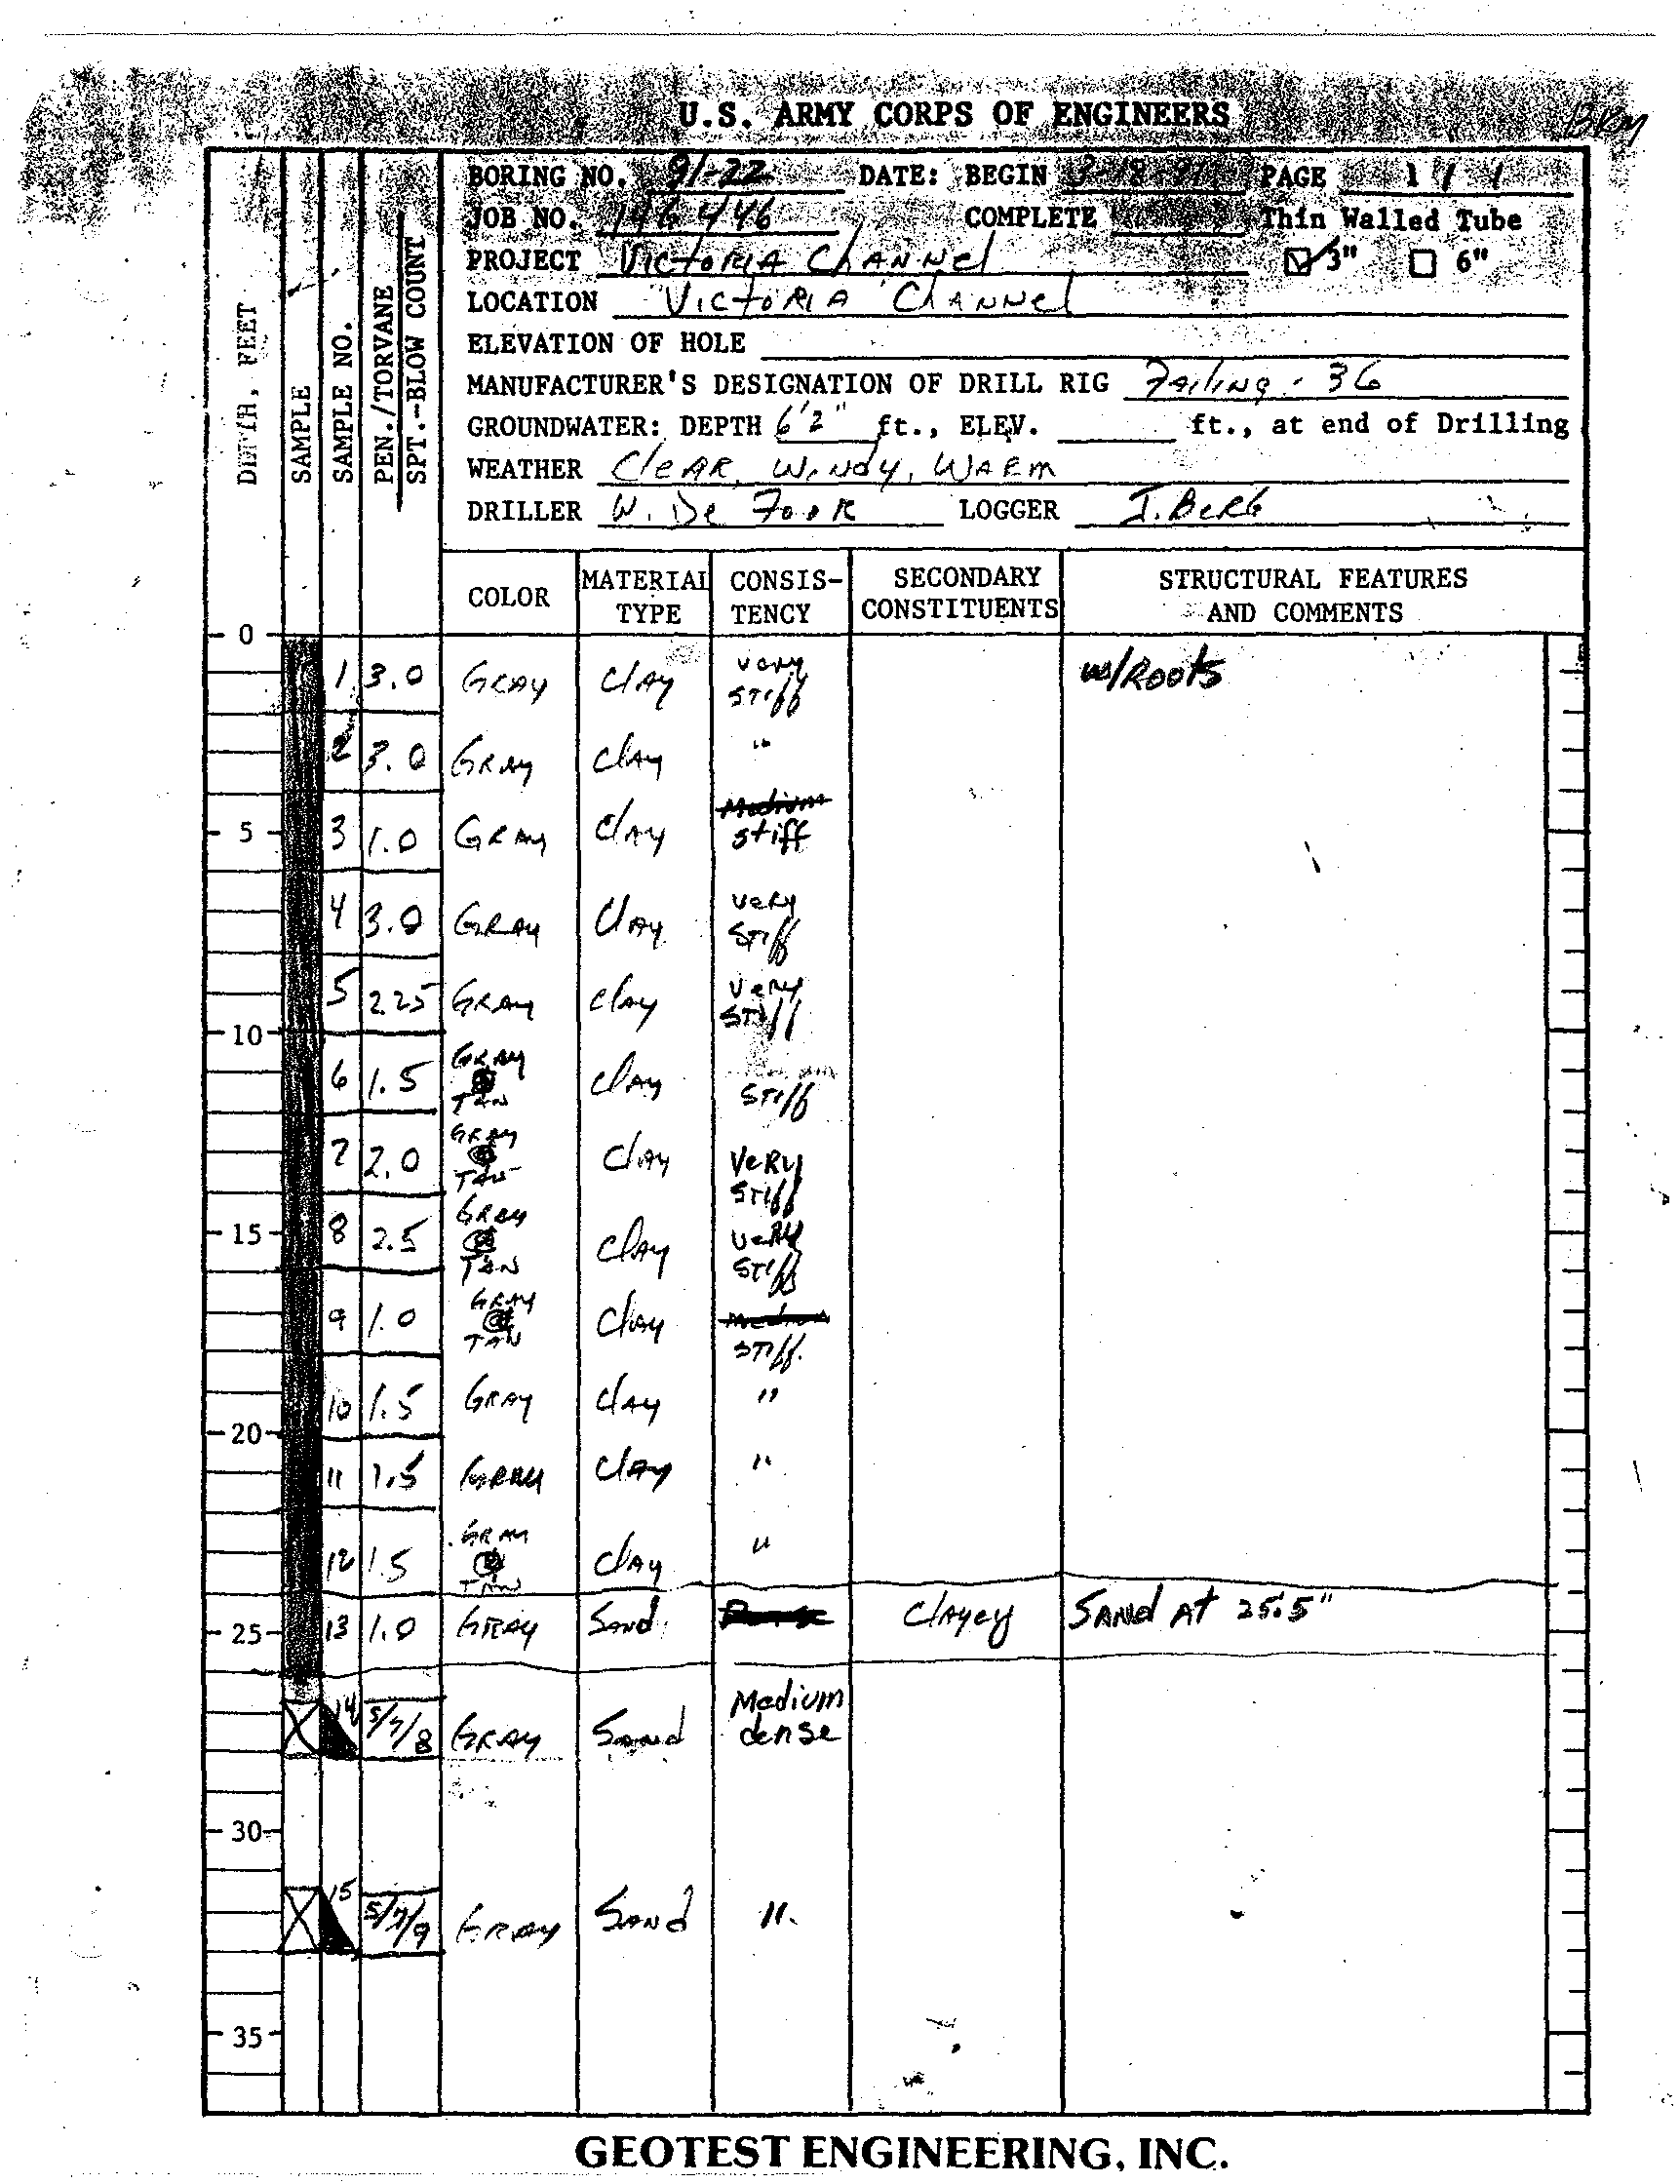 U.S. ARMY CORPS OF ENGINEERS
BORING NO. 91-22 DATE: BEGIN 3-18-91 PAGE 1 / 1
JOB NO. 146446 COMPLETE Thin Walled Tube
PROJECT Victoria Channel 3" 6"
LOCATION Victoria Channel
ELEVATION OF HOLE
MANUFACTURER'S DESIGNATION OF DRILL RIG Failing - 36
GROUNDWATER: DEPTH 6'2" ft., ELEV. ft., at end of Drilling
WEATHER Clear, Windy, Warm
DRILLER W. De Foor LOGGER J. Berg
DEPTH, FEET
SAMPLE
SAMPLE NO.
PEN./TORVANE
SPT.-BLOW COUNT
COLOR MATERIAL TYPE CONSIS-TENCY SECONDARY CONSTITUENTS STRUCTURAL FEATURES AND COMMENTS
0
1 3.0 GRAY Clay very stiff w/Roots
2 3.0 GRAY Clay "
5 3 1.0 GRAY Clay Medium stiff
4 3.0 GRAY Clay very stiff
5 2.25 GRAY Clay very stiff
10
6 1.5 GRAY TAN Clay stiff
7 2.0 GRAY TAN Clay very stiff
15 8 2.5 GRAY TAN Clay very stiff
9 1.0 GRAY TAN Clay Medium stiff.
10 1.5 GRAY Clay "
20
11 1.5 GRAY Clay "
12 1.5 GRAY TAN Clay "
25 13 1.0 GRAY Sand Dense Clayey SAND At 25.5"
14 5/7/8 GRAY Sand Medium dense
30
15 5/7/9 GRAY Sand ".
35
GEOTEST ENGINEERING, INC.